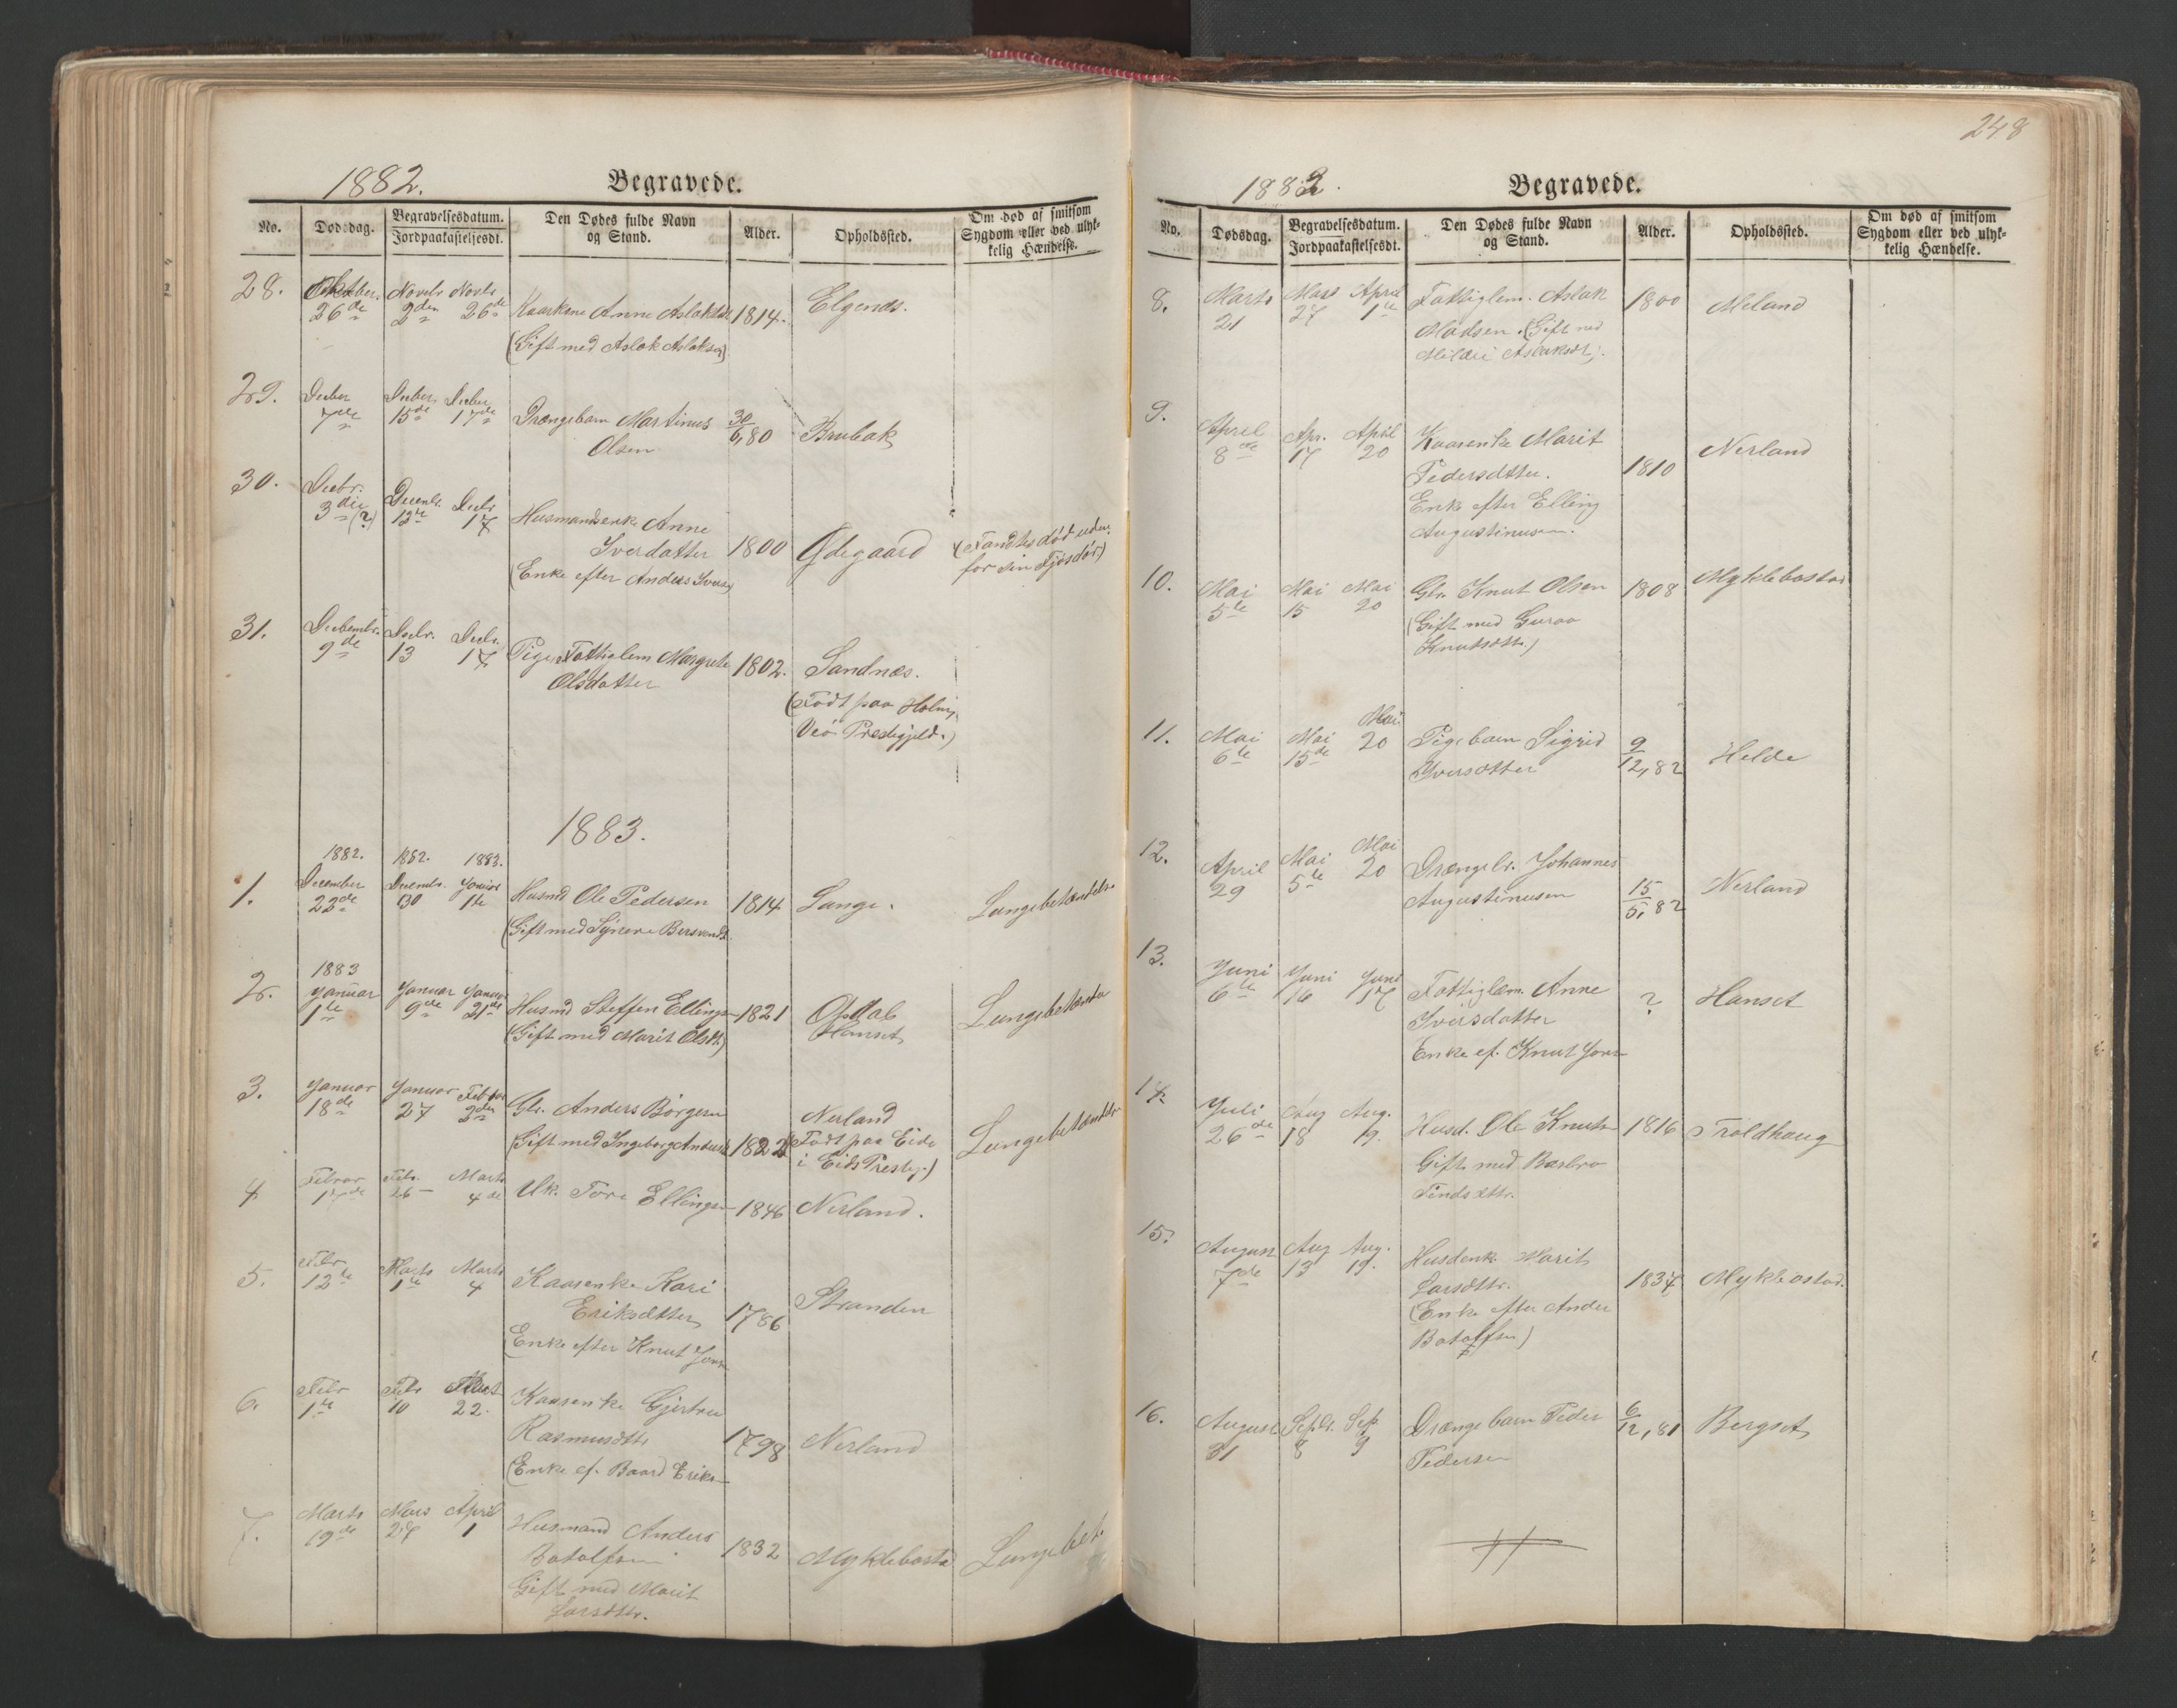 248
1882.
Begravede.
No.
Dødsdag.
Begravelsesdatum.
Jordpaakastelsesdt.
Den Dødes fulde Navn
og Stand.
Alder.
Opholdssted.
Om død af smitsom
Sygdom eller ved ulyk-
kelig Hændelse.
28. Oktober Novbr Novbr
26de 2den 26de Kaarkone Anne Aslaksd 1814. Elgenes.
(Gift med Aslak Aslaksen)
29. Decber Decber Decber
7de 15de 17de Drængebarn Martinus 30/6,80 Brubak
Olsen
30. Decbr. Decembr Decbr
3die (?) 12te 17 Husmandsenke Anne
Iversdatter 1800 Ødegaard (Fandtes død uden-
(Enke efter Anders Ivers) for sin Fjøsdør)
31. Decembr. Decbr. Decbr.
9de 13 17 Pige Fattiglem Margrete 1802. Sandnes.
Olsdatter
(Født paa Holm,
Veø Prestegjeld.)
1883.
1882. 1882. 1883.
1. December Decembr. Januar
23de 30 1te Husmd Ole Pedersen 1814 Lange. Lungebetændelse
(Gift med Synnve Bersvendt.
1883
2. Januar Januar Januar
1te 9de 21de Husmd Steffen Ellingsn 1821 Opdal Lungebetændelse
(Gift med Marit Olsdt.) Hanset
3. Januar Januar Februar
18de 27 2den Gbr. Anders Børgesen Nerland
Gift med Ingeborg Andersd 1822 (Født paa Eide Lungebetændelse
i Eids Prestegj.)
4 Februar Febr. Marts
17de 26 4de Uk. Tore Ellingsn 1846 Nerland.
5. Febr Marts Marts
12te 1te 4 Kaarenke Kari
Eriksdatter 1786 Stranden
(Enke efter Knut Jons
6. Febr Febr
1te 10 22. Kaarenke Gjertru
Rasmusdtr 1798 Nerland
(Enke ef. Baard Eriks
7. Marts Mars April
19de 27 1 Husmand Anders
Botolfsen 1832 Myklebosta Lungebet.
Gift med Marit
Larsdttr.
1883.
Begravede.
No.
Dødsdag.
Begravelsesdatum.
Jordpaakastelsesdt.
Den Dødes fulde Navn
og Stand.
Alder.
Opholdssted.
Om død af smitsom
Sygdom eller ved ulyk-
kelig Hændelse.
8. Marts Mars April Fattiglem. Aslak 1800 Meland
21 27 1te Madsen. (Gift med
Mildri Aslaksdt).
9. April Apr. April Kaarenke Marit Nerland
8de 17 20 Pedersdtter. 1810
Enke efter Elling
Augustinusen.
10. Mai Mai Mai Gbr. Knut Olsen 1808 Myklebostad
5te 15 20 (Gift med Guroo
Knutsdttr.)
11. Mai Mai Mai Pigebarn Sigrid 9/12,82 Helde
6te 15de 20 Iversdtter
12. April Mai Mai Drængebr. Johannes
29 5te 20 Augustinusen 15/5,82 Nerland
13. Juni Juni Juni
6te 16 17 Fattiglem. Anne ? Hanset
Iversdatter
Enke ef. Knut Jons
14. Juli Aug Aug.
26de 18 19. Husd. Ole Knuts 1816 Troldhaug
Gift med Barbro
Findsdttr.
15. August Aug Aug. Husdenk. Marit
7de 13 19. Larsdttr. 1834 Myklbostad.
(Enke efter Ander
Botolfsen)
16. August Sepbr. Sep. Drængebarn Peder 6/12,81 Bergset
31 8 9 Pedersen